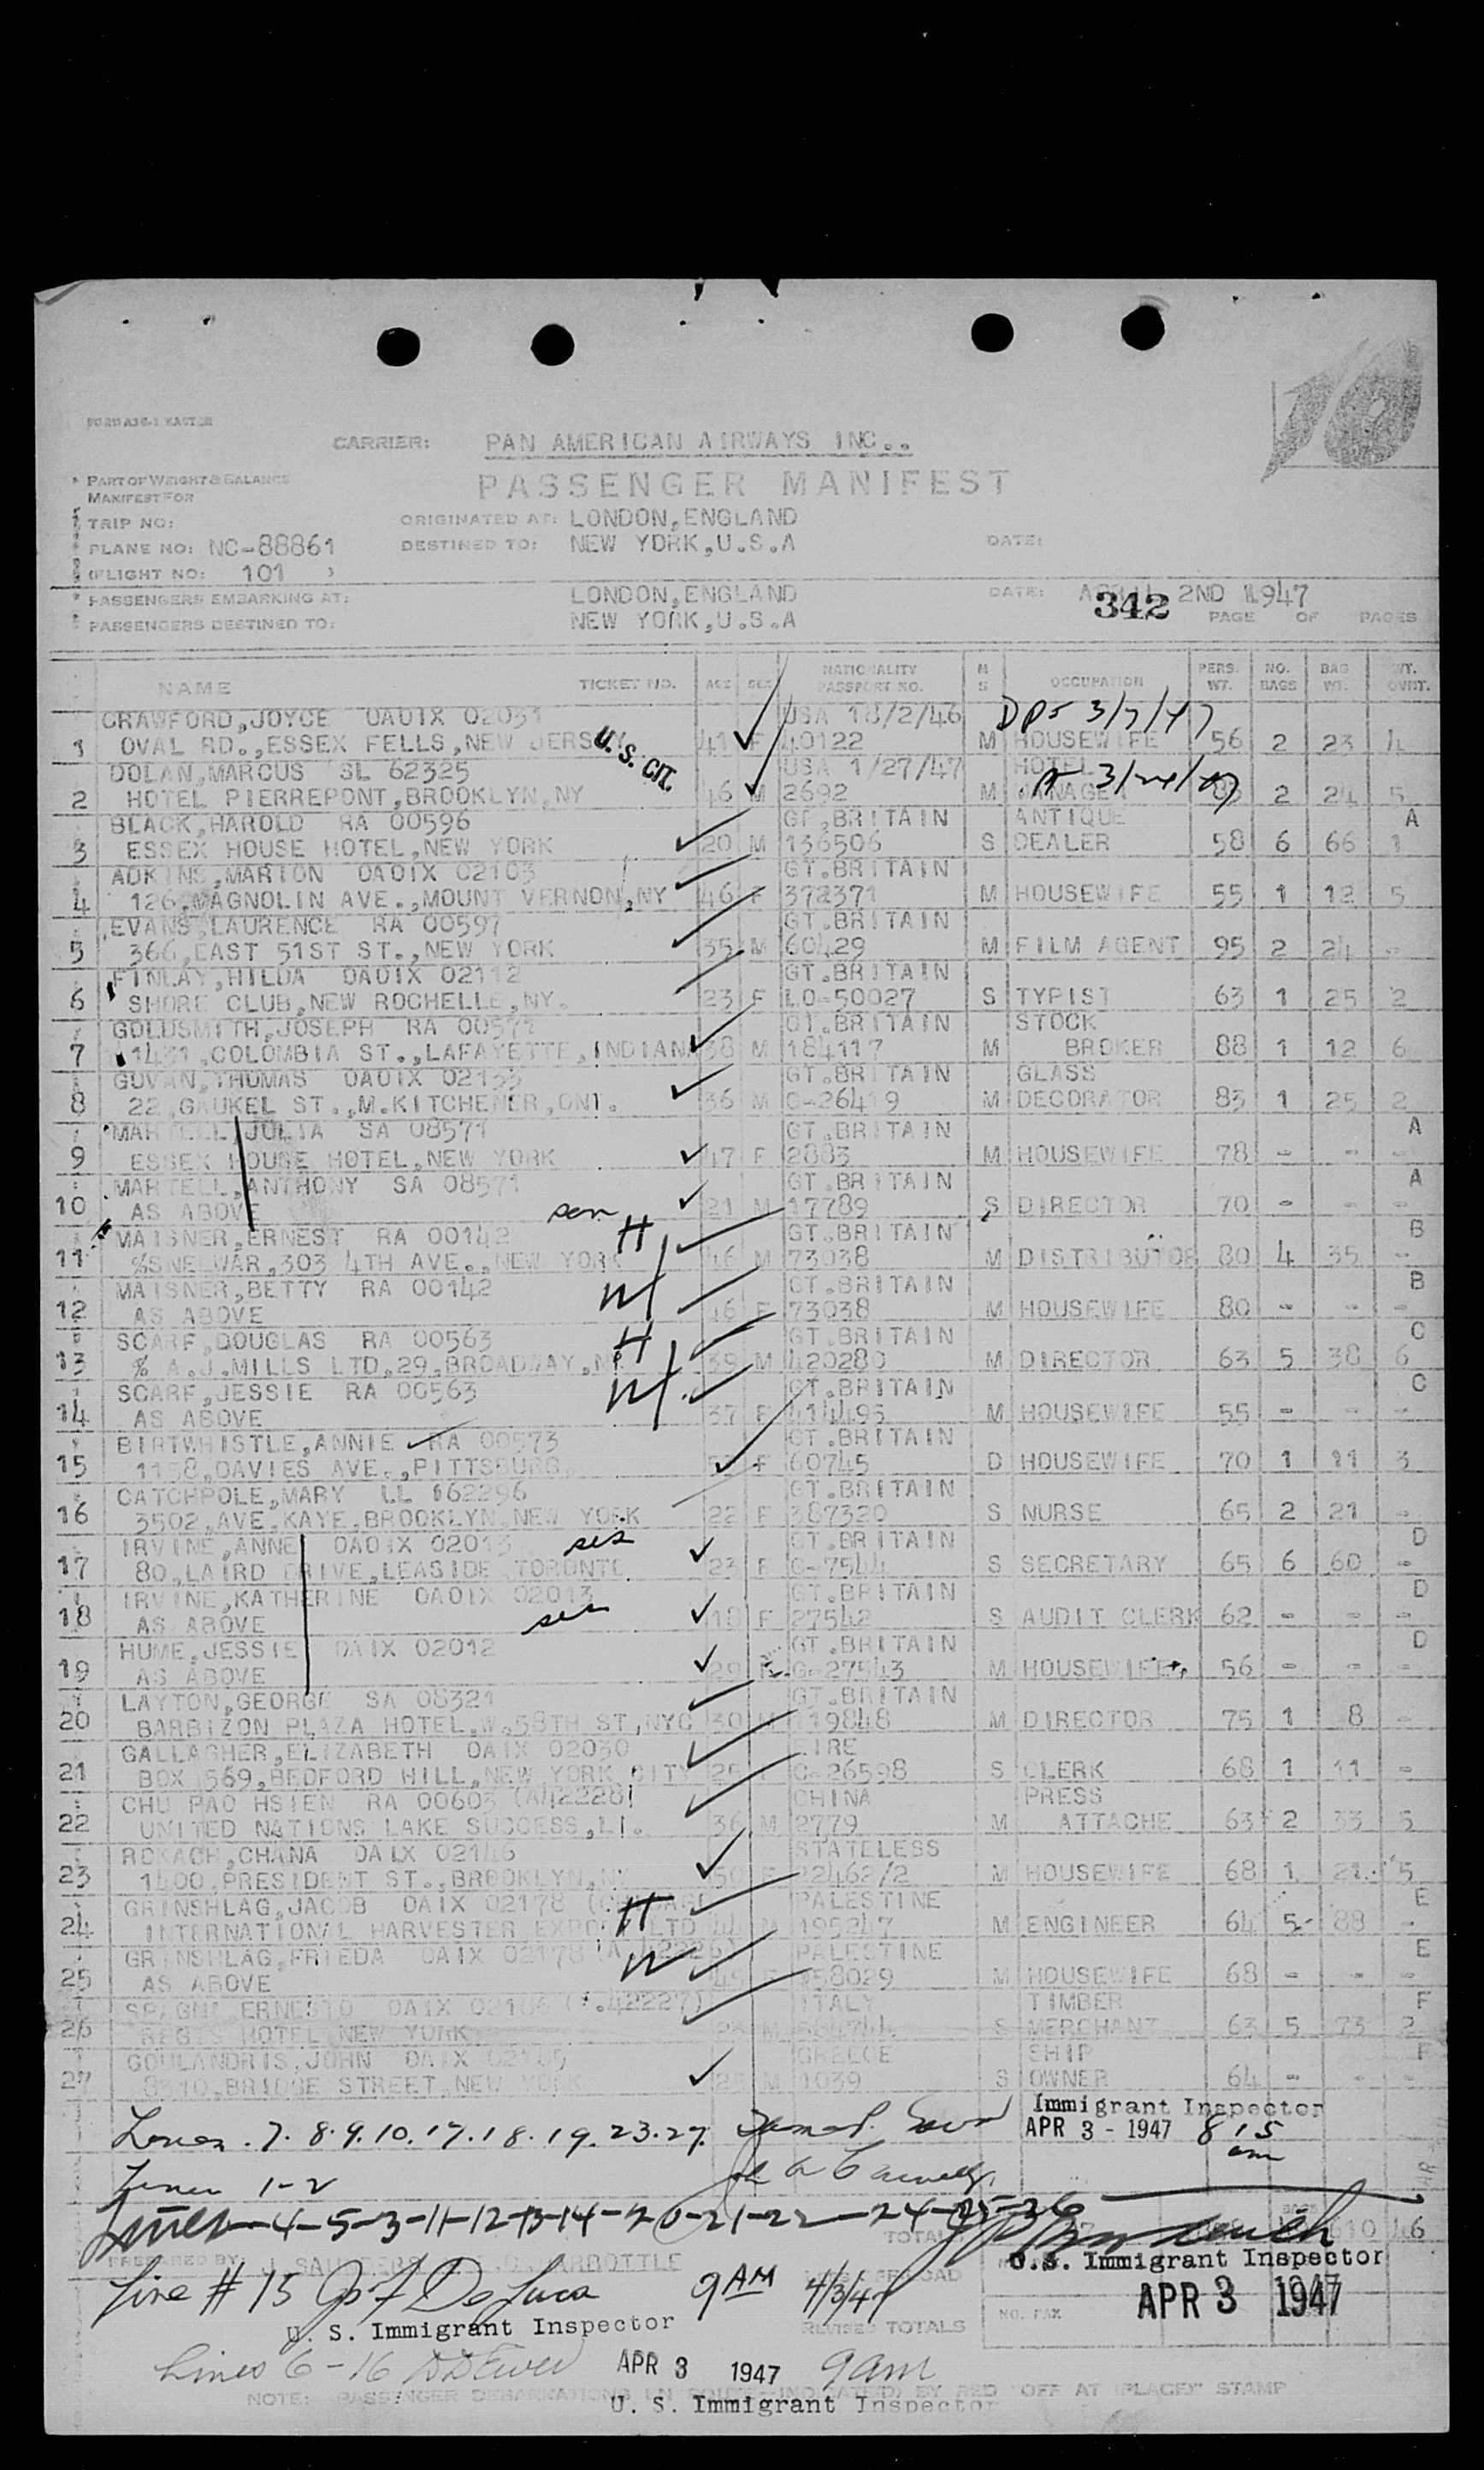 10
FORM A36-1 MASTER
CARRIER: PAN AMERICAN AIRWAYS INC..
PART OF WEIGHT & BALANCE
MANIFEST FOR
PASSENGER MANIFEST
TRIP NO: ORIGINATED AT: LONDON,ENGLAND
PLANE NO: NC-88861 DESTINED TO: NEW YORK,U.S.A DATE:
(FLIGHT NO: 101 )
PASSENGERS EMBARKING AT: LONDON,ENGLAND DATE: 2ND 1947
342
PASSENGERS DESTINED TO: NEW YORK,U.S.A PAGE OF PAGES
NAME TICKET NO. AGE SEX NATIONALITY PASSPORT NO. M S OCCUPATION PERS. WT. NO. BAGS BAG WT. WT. OVRT.
CRAWFORD,JOYCE OAOIX 02031 USA 18/2/46
1 OVAL RD.,ESSEX FELLS,NEW JERSEY 41 F 40122 M HOUSEWIFE 56 2 23 4
U.S. CIT.
DOLAN,MARCUS SL 62325 USA 1/27/47 HOTEL
2 HOTEL PIERREPONT,BROOKLYN,NY 46 M 2692 M MANAGER 2 24 5
BLACK,HAROLD RA 00596 GT.BRITAIN ANTIQUE A
3 ESSEX HOUSE HOTEL,NEW YORK 20 M 136506 S DEALER 58 6 66 1
ADKINS,MARION OAOIX 02103 GT.BRITAIN
4 126,MAGNOLIN AVE.,MOUNT VERNON,NY 46 F 372371 M HOUSEWIFE 55 1 12 5
EVANS,LAURENCE RA 00597 GT.BRITAIN
5 366,EAST 51ST ST.,NEW YORK 35 M 60429 M FILM AGENT 95 2 24 -
FINLAY,HILDA OAOIX 02112 GT.BRITAIN
6 SHORE CLUB,NEW ROCHELLE,NY. 23 F LO-50027 S TYPIST 63 1 25 2
GOLDSMITH,JOSEPH RA 00571 GT.BRITAIN STOCK
7 1431,COLOMBIA ST.,LAFAYETTE,INDIANA 38 M 184117 M BROKER 88 1 12 6
GOVAN,THOMAS OAOIX 02133 GT.BRITAIN GLASS
8 22,GAUKEL ST.,M.KITCHENER,ONT. 36 M C-26419 M DECORATOR 83 1 25 2
MARTELL,JULIA SA 08571 GT.BRITAIN A
9 ESSEX HOUSE HOTEL,NEW YORK 47 F 2883 M HOUSEWIFE 78 - - -
MARTELL,ANTHONY SA 08571 GT.BRITAIN A
10 AS ABOVE son 21 M 17789 S DIRECTOR 70 - - -
MAISNER,ERNEST RA 00142 H GT.BRITAIN B
11 %SNELWAR,303 4TH AVE.,NEW YORK 46 M 73038 M DISTRIBUTOR 80 4 35 -
MAISNER,BETTY RA 00142 W GT.BRITAIN B
12 AS ABOVE 46 F 73038 M HOUSEWIFE 80 - - -
SCARF,DOUGLAS RA 00563 H GT.BRITAIN C
13 % A.J.MILLS LTD,29,BROADWAY,NY 39 M 420280 M DIRECTOR 63 5 38 6
SCARF,JESSIE RA 00563 W GT.BRITAIN C
14 AS ABOVE 37 F 414495 M HOUSEWIFE 55 - - -
BIRTWHISTLE,ANNIE RA 00573 GT.BRITAIN
15 1158,DAVIES AVE.,PITTSBURG. F 60745 D HOUSEWIFE 70 1 11 3
CATCHPOLE,MARY LL 162296 GT.BRITAIN
16 3502,AVE.KAYE,BROOKLYN,NEW YORK 22 F 387320 S NURSE 65 2 21 -
IRVINE,ANNE OAOIX 02013 sis GT.BRITAIN D
17 80,LAIRD DRIVE,LEASIDE TORONTO 23 F C-7544 S SECRETARY 65 6 60 -
IRVINE,KATHERINE OAOIX 02013 GT.BRITAIN D
18 AS ABOVE sis 18 F 27542 S AUDIT CLERK 62 - - -
HUME,JESSIE OAIX 02012 GT.BRITAIN D
19 AS ABOVE 29 F C-27543 M HOUSEWIFE 56 - - -
LAYTON,GEORGE SA 08321 GT.BRITAIN
20 BARBIZON PLAZA HOTEL,W.58TH ST,NYC 30 M 119848 M DIRECTOR 75 1 8 -
GALLAGHER,ELIZABETH OAIX 02030 EIRE
21 BOX 569,BEDFORD HILL,NEW YORK CITY C-26598 S CLERK 68 1 11 -
CHU PAO HSIEN RA 00603 (A42228) CHINA PRESS
22 UNITED NATIONS LAKE SUCCESS,LI. 36 M 2779 M ATTACHE 63 2 33 5
ROKACH,CHANA OAIX 02146 STATELESS
23 1400,PRESIDENT ST.,BROOKLYN,NY 50 F 22462/2 M HOUSEWIFE 68 1 21 5
GRINSHLAG,JACOB OAIX 02178 H PALESTINE E
24 INTERNATIONAL HARVESTER EXPORT LTD 44 M 195247 M ENGINEER 64 5 88 -
GRINSHLAG,FRIEDA OAIX 02178 W PALESTINE E
25 AS ABOVE F 158029 M HOUSEWIFE 68 - - -
ERNESTO OAIX 02186 (A.42227) ITALY TIMBER F
26 REGIS HOTEL NEW YORK M S MERCHANT 63 5 73 2
GOULANDRIS,JOHN OAIX 02185 GREECE SHIP F
27 8310,BRIDGE STREET,NEW YORK M 1039 S OWNER 64 - - -
Lines. 7. 8. 9. 10. 17. 18. 19. 23. 27. Immigrant Inspector
APR 3 - 1947 8 15 am
Lines 1-2
Lines 4-5-3-11-12-13-14-20-21-22-24-25-26
TOTALS 46
PREPARED BY
U.S. Immigrant Inspector
APR 3 1947
Line # 15 Jos F De Luca 9 AM 4/3/47
U. S. Immigrant Inspector
NO. PAX
REVISED TOTALS
Lines 6-16 APR 3 1947 9am
NOTE: PASSENGER DEBARKATIONS EN ROUTE INDICATED BY RED "OFF AT (PLACE)" STAMP
U. S. Immigrant Inspector